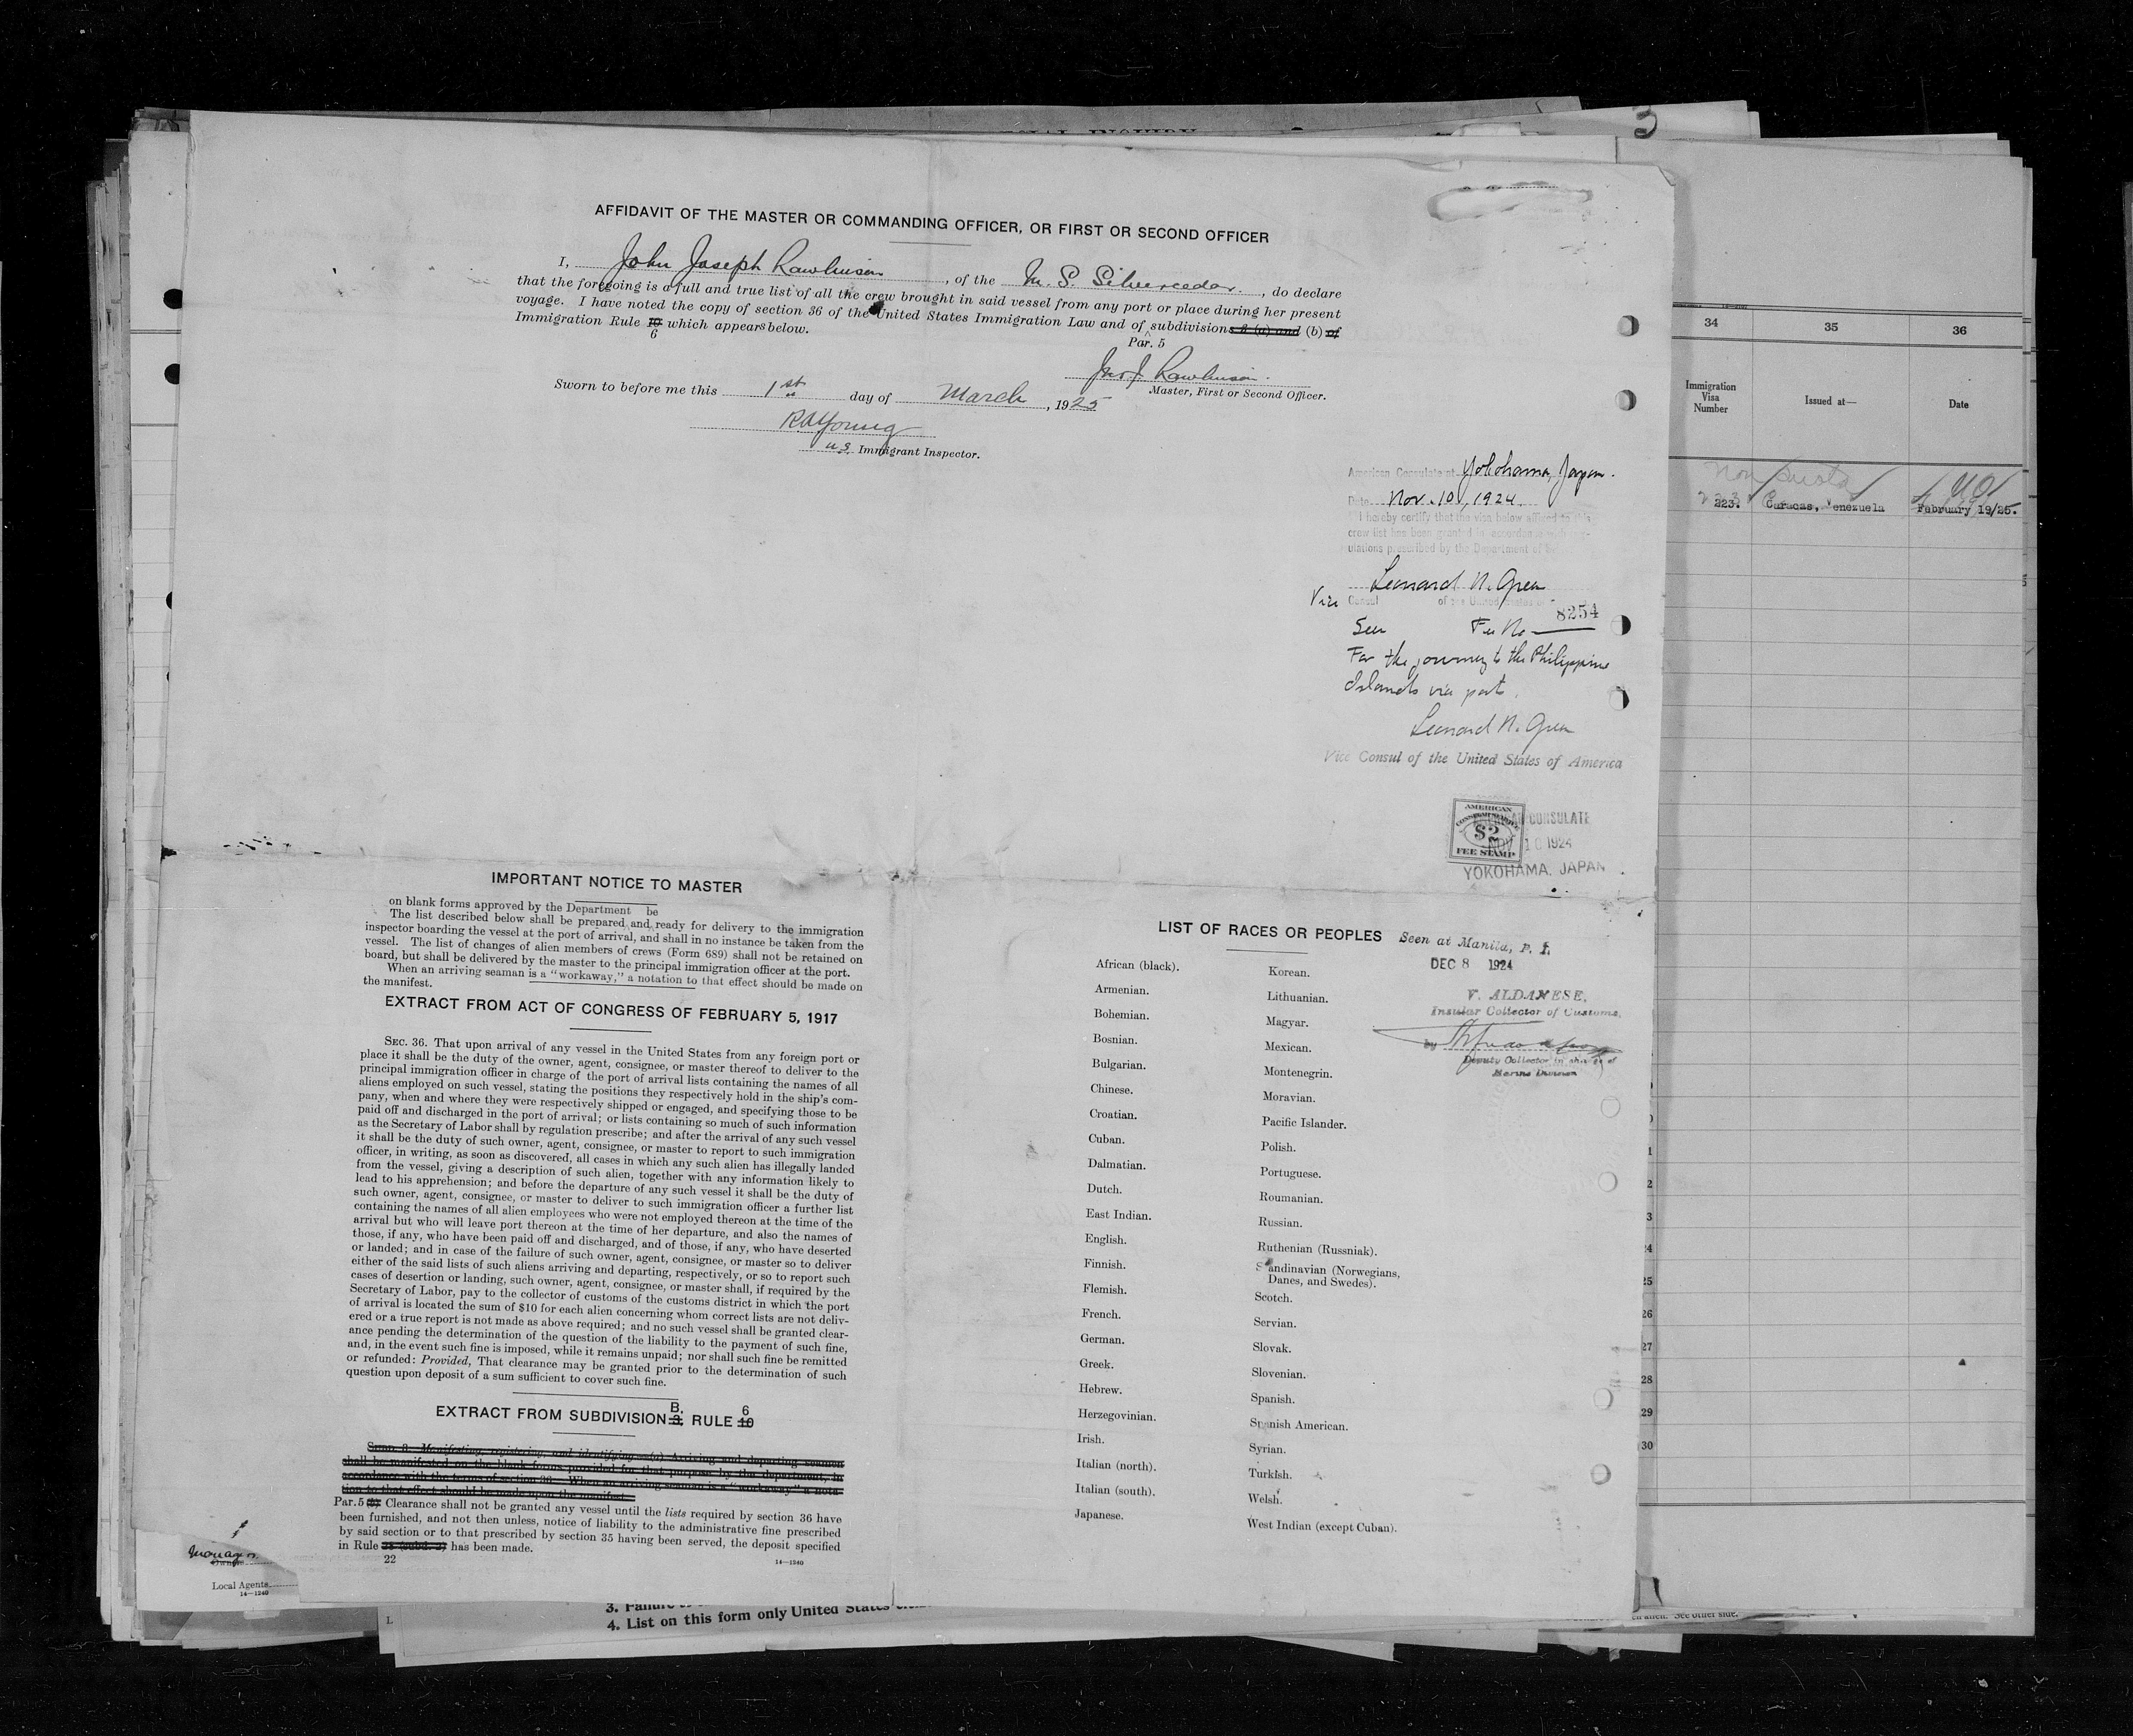 AFFIDAVIT OF THE MASTER OR COMMANDING OFFICER, OR FIRST OR SECOND OFFICER
I, John Joseph Rawlinson, of the M. S. Silvercedar., do declare
that the foregoing is a full and true list of all the crew brought in said vessel from any port or place during her present
voyage. I have noted the copy of section 36 of the United States Immigration Law and of subdivisions 2 (a) and (b) of
Par. 5
Immigration Rule 10 which appears below.
6
Jno J Rawlinson.
Master, First or Second Officer.
Sworn to before me this 1st day of March, 1925
RAYoung
U.S. Immigrant Inspector.
American Consulate at Yokohama, Japan.
Date Nov. 10, 1924.
I hereby certify that the visa below affixed to this
crew list has been granted in accordance with reg-
ulations prescribed by the Department of
Leonard N. Green
Vice Consul of the United States of
Seen Fee No 8254
For the journey to the Philippine
Islands via ports.
Leonard N. Green
Vice Consul of the United States of America
AMERICAN
CONSULAR SERVICE
$2
FEE STAMP
CONSULATE
NOV 10 1924
YOKOHAMA. JAPAN
IMPORTANT NOTICE TO MASTER
on blank forms approved by the Department be
The list described below shall be prepared and ready for delivery to the immigration
inspector boarding the vessel at the port of arrival, and shall in no instance be taken from the
vessel. The list of changes of alien members of crews (Form 689) shall not be retained on
board, but shall be delivered by the master to the principal immigration officer at the port.
When an arriving seaman is a "workaway," a notation to that effect should be made on
the manifest.
EXTRACT FROM ACT OF CONGRESS OF FEBRUARY 5, 1917
SEC. 36. That upon arrival of any vessel in the United States from any foreign port or
place it shall be the duty of the owner, agent, consignee, or master thereof to deliver to the
principal immigration officer in charge of the port of arrival lists containing the names of all
aliens employed on such vessel, stating the positions they respectively hold in the ship's com-
pany, when and where they were respectively shipped or engaged, and specifying those to be
paid off and discharged in the port of arrival; or lists containing so much of such information
as the Secretary of Labor shall by regulation prescribe; and after the arrival of any such vessel
it shall be the duty of such owner, agent, consignee, or master to report to such immigration
officer, in writing, as soon as discovered, all cases in which any such alien has illegally landed
from the vessel, giving a description of such alien, together with any information likely to
lead to his apprehension; and before the departure of any such vessel it shall be the duty of
such owner, agent, consignee, or master to deliver to such immigration officer a further list
containing the names of all alien employees who were not employed thereon at the time of the
arrival but who will leave port thereon at the time of her departure, and also the names of
those, if any, who have been paid off and discharged, and of those, if any, who have deserted
or landed; and in case of the failure of such owner, agent, consignee, or master so to deliver
either of the said lists of such aliens arriving and departing, respectively, or so to report such
cases of desertion or landing, such owner, agent, consignee, or master shall, if required by the
Secretary of Labor, pay to the collector of customs of the customs district in which the port
of arrival is located the sum of $10 for each alien concerning whom correct lists are not deliv-
ered or a true report is not made as above required; and no such vessel shall be granted clear-
ance pending the determination of the question of the liability to the payment of such fine,
and, in the event such fine is imposed, while it remains unpaid; nor shall such fine be remitted
or refunded: Provided, That clearance may be granted prior to the determination of such
question upon deposit of a sum sufficient to cover such fine.
B. 6
EXTRACT FROM SUBDIVISION 3, RULE 10
Manifesting, registering, and identifying—(a) Arriving and departing seamen
shall be manifested on the blank forms provided for that purpose by the department, in
accordance with the terms of section 36. When an arriving seaman is a "workaway" a nota-
tion to that effect should be made upon the manifest.
Par. 5 (b) Clearance shall not be granted any vessel until the lists required by section 36 have
been furnished, and not then unless, notice of liability to the administrative fine prescribed
by said section or to that prescribed by section 35 having been served, the deposit specified
in Rule has been made.
22
14—1240
LIST OF RACES OR PEOPLES
African (black).
Armenian.
Bohemian.
Bosnian.
Bulgarian.
Chinese.
Croatian.
Cuban.
Dalmatian.
Dutch.
East Indian.
English.
Finnish.
Flemish.
French.
German.
Greek.
Hebrew.
Herzegovinian.
Irish.
Italian (north).
Italian (south).
Japanese.
Korean.
Lithuanian.
Magyar.
Mexican.
Montenegrin.
Moravian.
Pacific Islander.
Polish.
Portuguese.
Roumanian.
Russian.
Ruthenian (Russniak).
Scandinavian (Norwegians,
Danes, and Swedes).
Scotch.
Servian.
Slovak.
Slovenian.
Spanish.
Spanish American.
Syrian.
Turkish.
Welsh.
West Indian (except Cuban).
Seen at Manila, P. I.
DEC 8 1924
V. ALDANESE,
Insular Collector of Customs,
by
Deputy Collector in charge of
Marine Division
3
34 35 36
Immigration
Visa
Number
Issued at—
Date
Non quota
223. Caracas, Venezuela February 19/25.
24
25
26
27
28
29
30
Manager
Owner
Local Agents
14—1240
3. Failure
4. List on this form only United States
See other side.